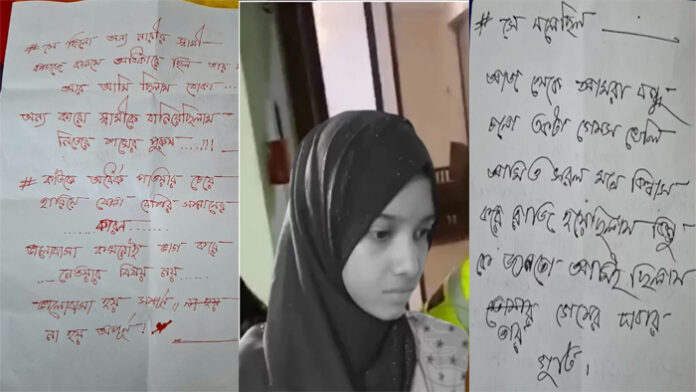 # সে ছিলো অন্য নারীর স্বামী
ছিল তার
আর আমি ছিলাম বোকা ...
অন্য কারো স্বামীকে বানিয়েছিলাম
নিজের শখের পুরুষ .....!!!
# কাউকে অর্ধেক পাওয়ার চেয়ে
হারিয়ে ফেলা বেশি
কারন
ভালোবাসা কখনোই ভাগ করে
নেওয়ার বিষয় নয় .....
ভালোবাসা হয় সম্পূর্ণ !! না হয়
না হয় অপূর্ণ !
# সে বলেছিল
আজ থেকে আমরা বন্ধু
চলো একটা গেমস খেলি
আমিও সরল মনে বিশ্বাস
করে রাজি হয়েছিলাম কিন্তু
কে জানতো আমিই ছিলাম
তার গেমের দাবার
ঘুটি।